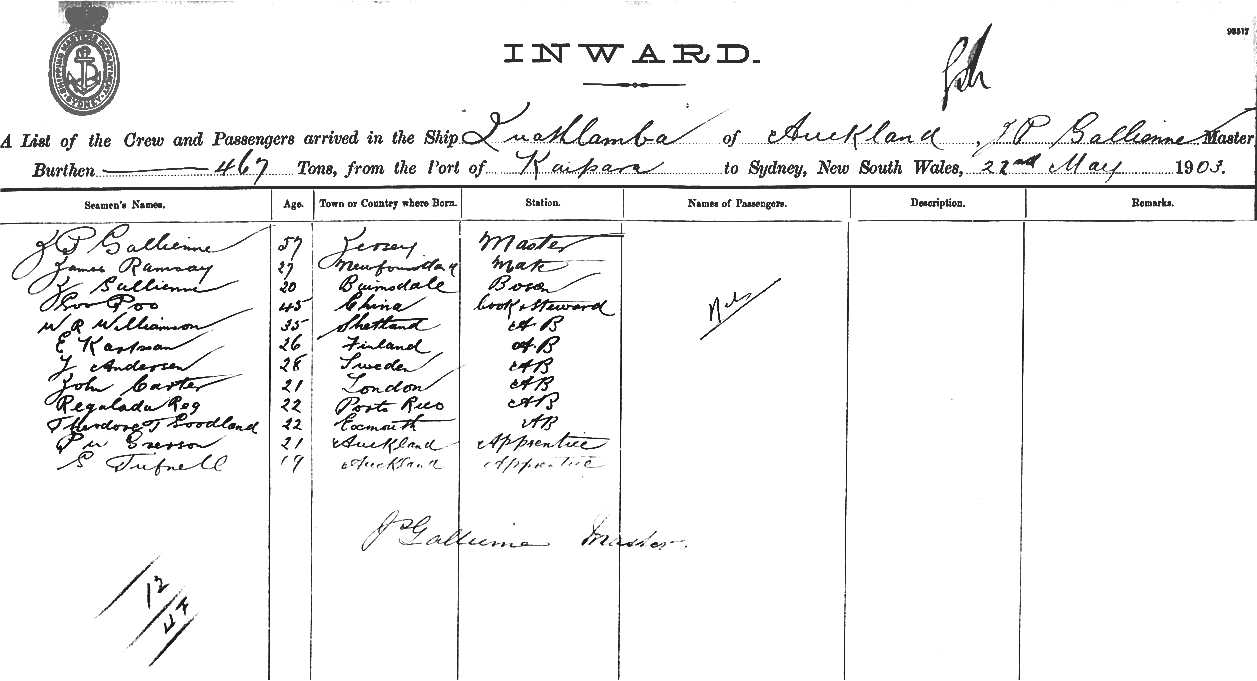 98517
SHIPPING MASTERS DEPARTMENT SYDNEY
INWARD.
A List of the Crew and Passengers arrived in the Ship Quathlamba of Auckland, J P Gallienne Master
Burthen 467 Tons, from the Port of Kaipara to Sydney, New South Wales, 22nd May 1903.
Seamen's Names. Age. Town or Country where Born. Station. Names of Passengers. Description. Remarks.
J P Gallienne 57 Jersey Master
James Ramsay 27 Newfoundland Mate
J Gallienne 20 Bairnsdale Bosn
Poo 45 China Cook & Steward
W R Williamson 35 Shetland AB
E Karlson 26 Finland AB
J Andersen 28 Sweden AB
John Carter 21 London AB
Regalada Reg 22 Porto Rico AB
Theodore T Goodland 22 Exmouth AB
P W 21 Auckland Apprentice
S Tufnell 19 Auckland Apprentice
J P Gallienne Master.
12